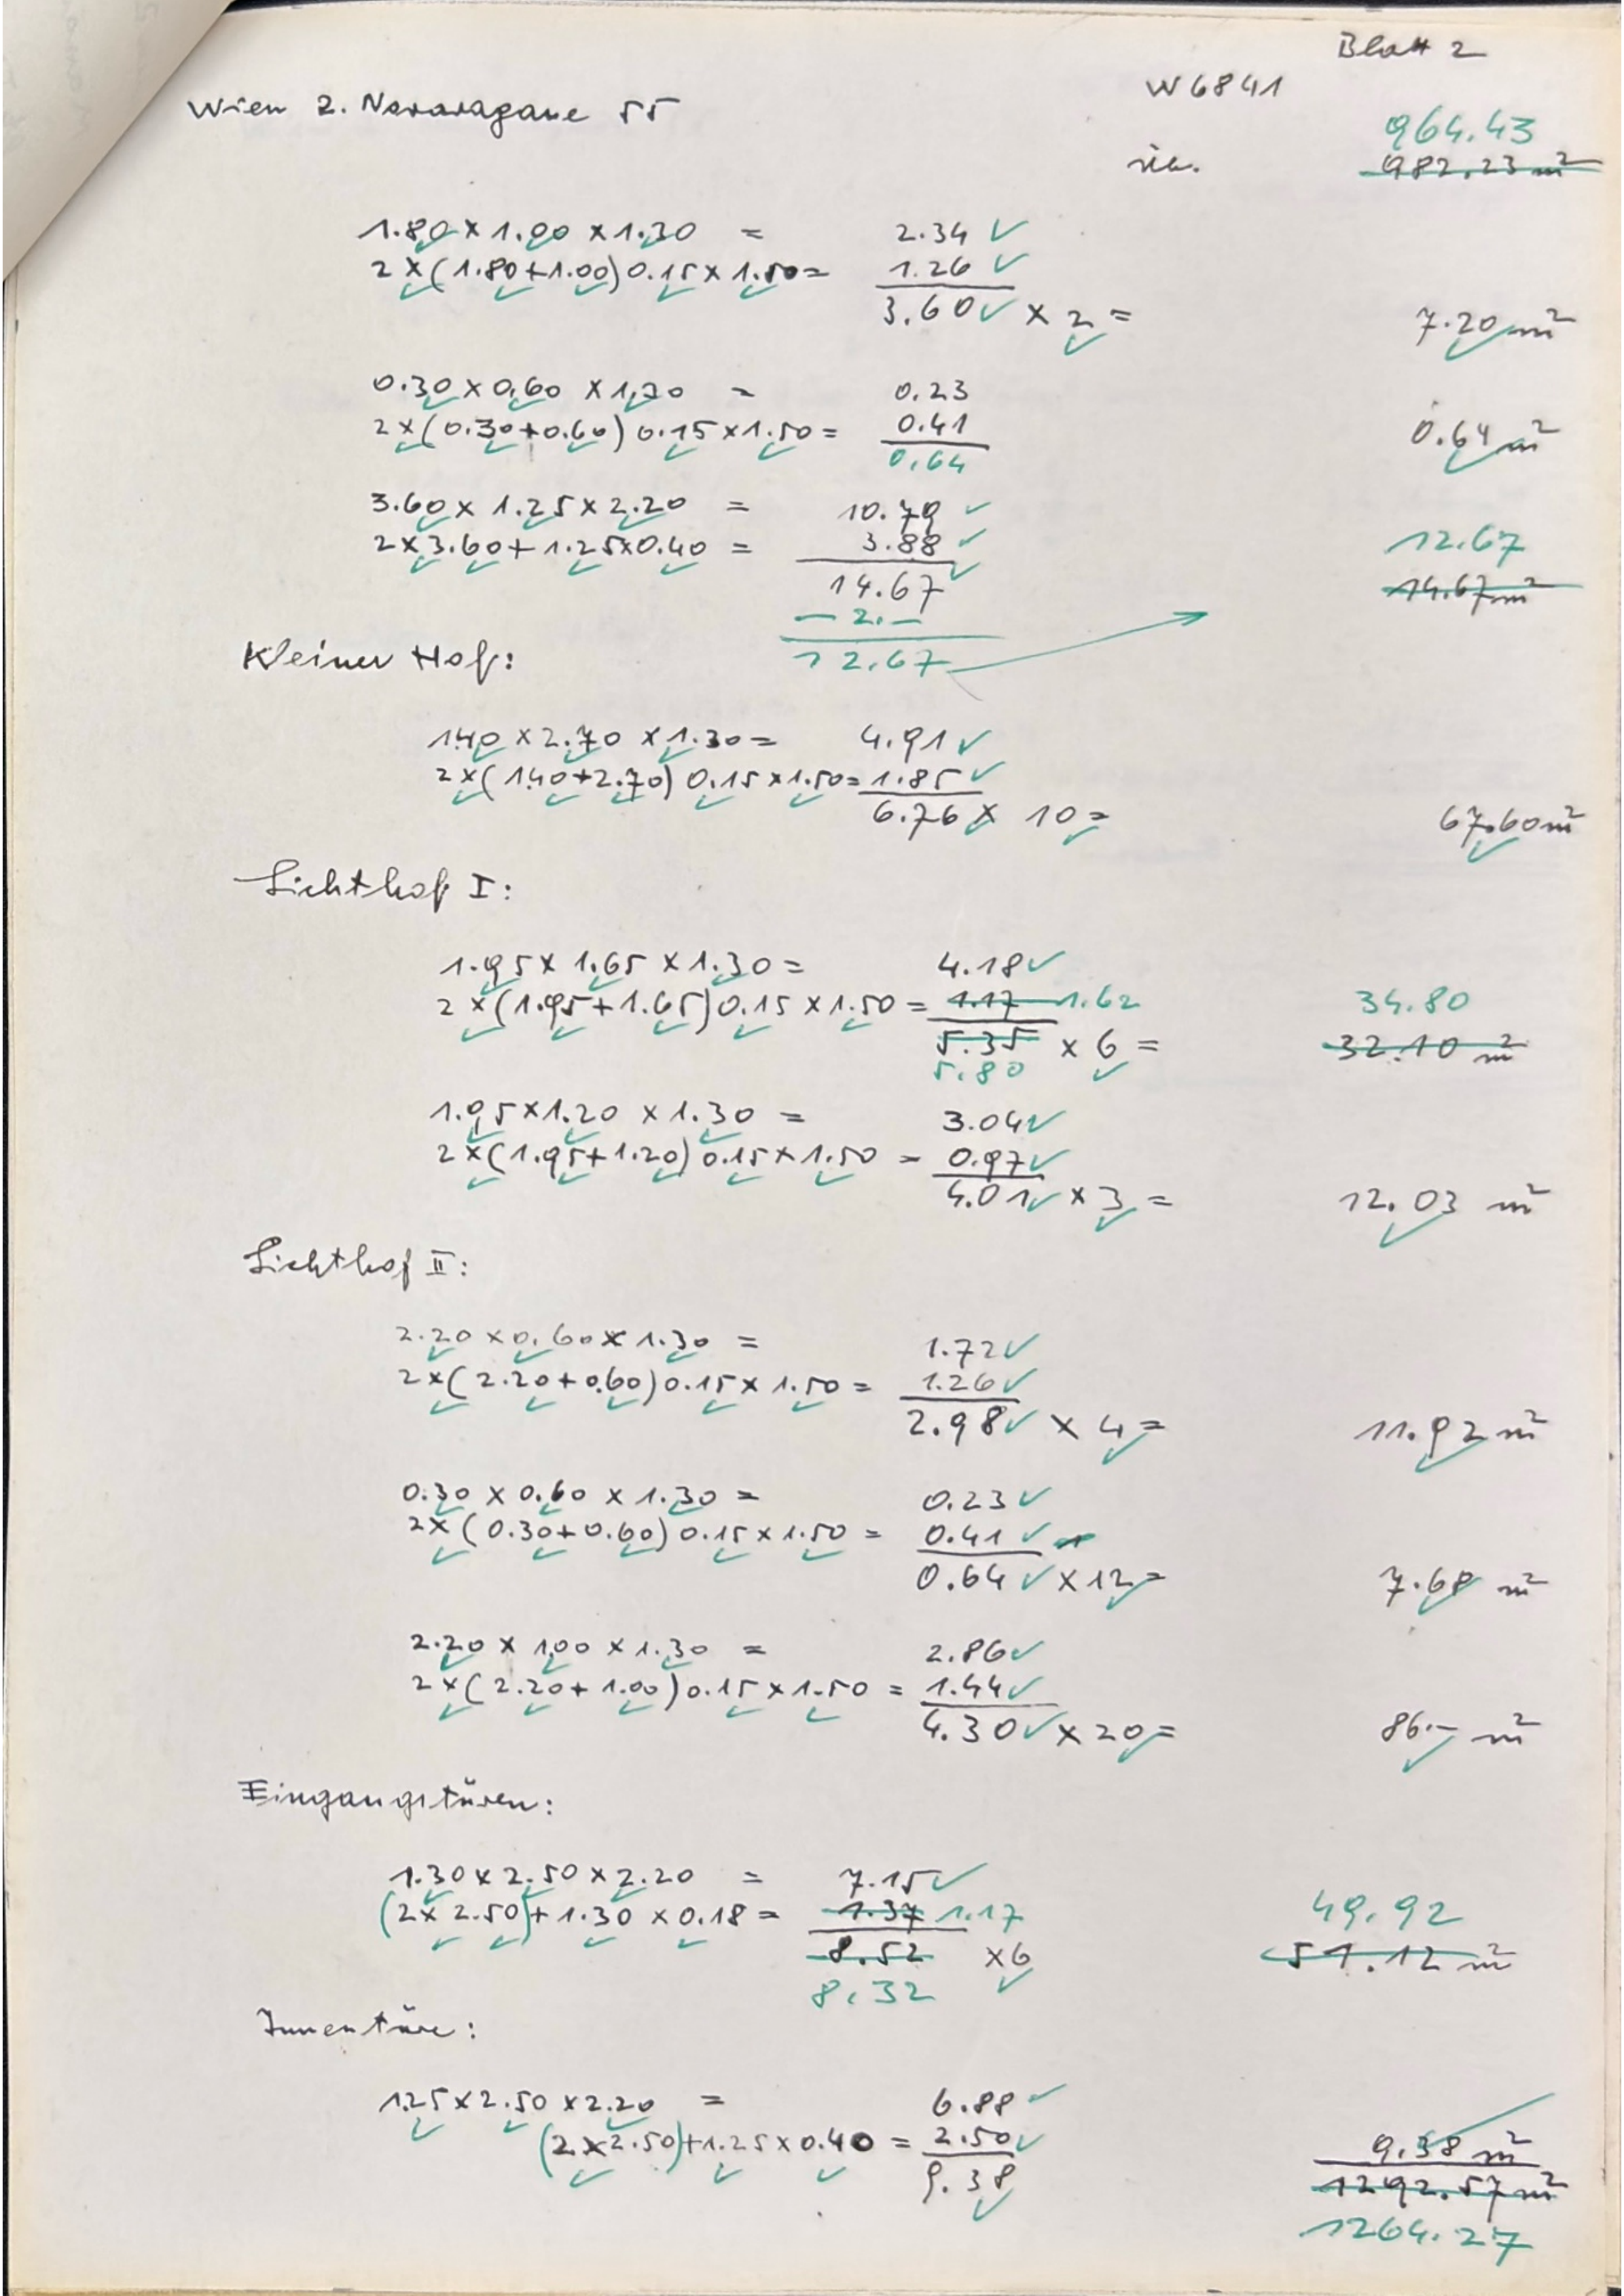 Blatt 2
W6841
Wien 2. Novaragasse 55
964.43
üb. 982.23 m²
1.80 x 1.00 x 1.30 = 2.34 ✓
2 x (1.80+1.00) 0.15 x 1.50 = 1.26 ✓
3.60 ✓ x 2 = 7.20 m²
0.30 x 0.60 x 1.30 = 0.23
2 x (0.30+0.60) 0.15 x 1.50 = 0.41 0.64 m²
0.64
3.60 x 1.25 x 2.20 = 10.79 ✓ 12.67
2 x 3.60 + 1.25 x 0.40 = 3.88 ✓
14.67 ✓ 14.67 m²
- 2.-
12.67
Kleiner Hof:
1.40 x 2.70 x 1.30 = 4.91 ✓
2 x (1.40+2.70) 0.15 x 1.50 = 1.85 ✓
6.76 x 10 = 67.60 m²
Lichthof I:
1.95 x 1.65 x 1.30 = 4.18 ✓
2 x (1.95+1.65) 0.15 x 1.50 = 1.17 1.62 34.80
5.35 x 6 = 32.10 m²
5.80
1.95 x 1.20 x 1.30 = 3.04 ✓
2 x (1.95+1.20) 0.15 x 1.50 = 0.97 ✓
4.01 ✓ x 3 = 12.03 m²
Lichthof II:
2.20 x 0.60 x 1.30 = 1.72 ✓
2 x (2.20+0.60) 0.15 x 1.50 = 1.26 ✓
2.98 ✓ x 4 = 11.92 m²
0.30 x 0.60 x 1.30 = 0.23 ✓
2 x (0.30+0.60) 0.15 x 1.50 = 0.41 ✓
0.64 ✓ x 12 = 7.68 m²
2.20 x 1.00 x 1.30 = 2.86 ✓
2 x (2.20+1.00) 0.15 x 1.50 = 1.44 ✓
4.30 ✓ x 20 = 86.- m²
Eingangstüren:
1.30 x 2.50 x 2.20 = 7.15 ✓
(2 x 2.50) + 1.30 x 0.18 = 1.37 1.17 49.92
8.52 x 6 51.12 m²
8.32
Innentüre:
1.25 x 2.50 x 2.20 = 6.88 ✓
(2 x 2.50) + 1.25 x 0.40 = 2.50 ✓ 9.38 m²
9.38 1292.57 m²
1264.27